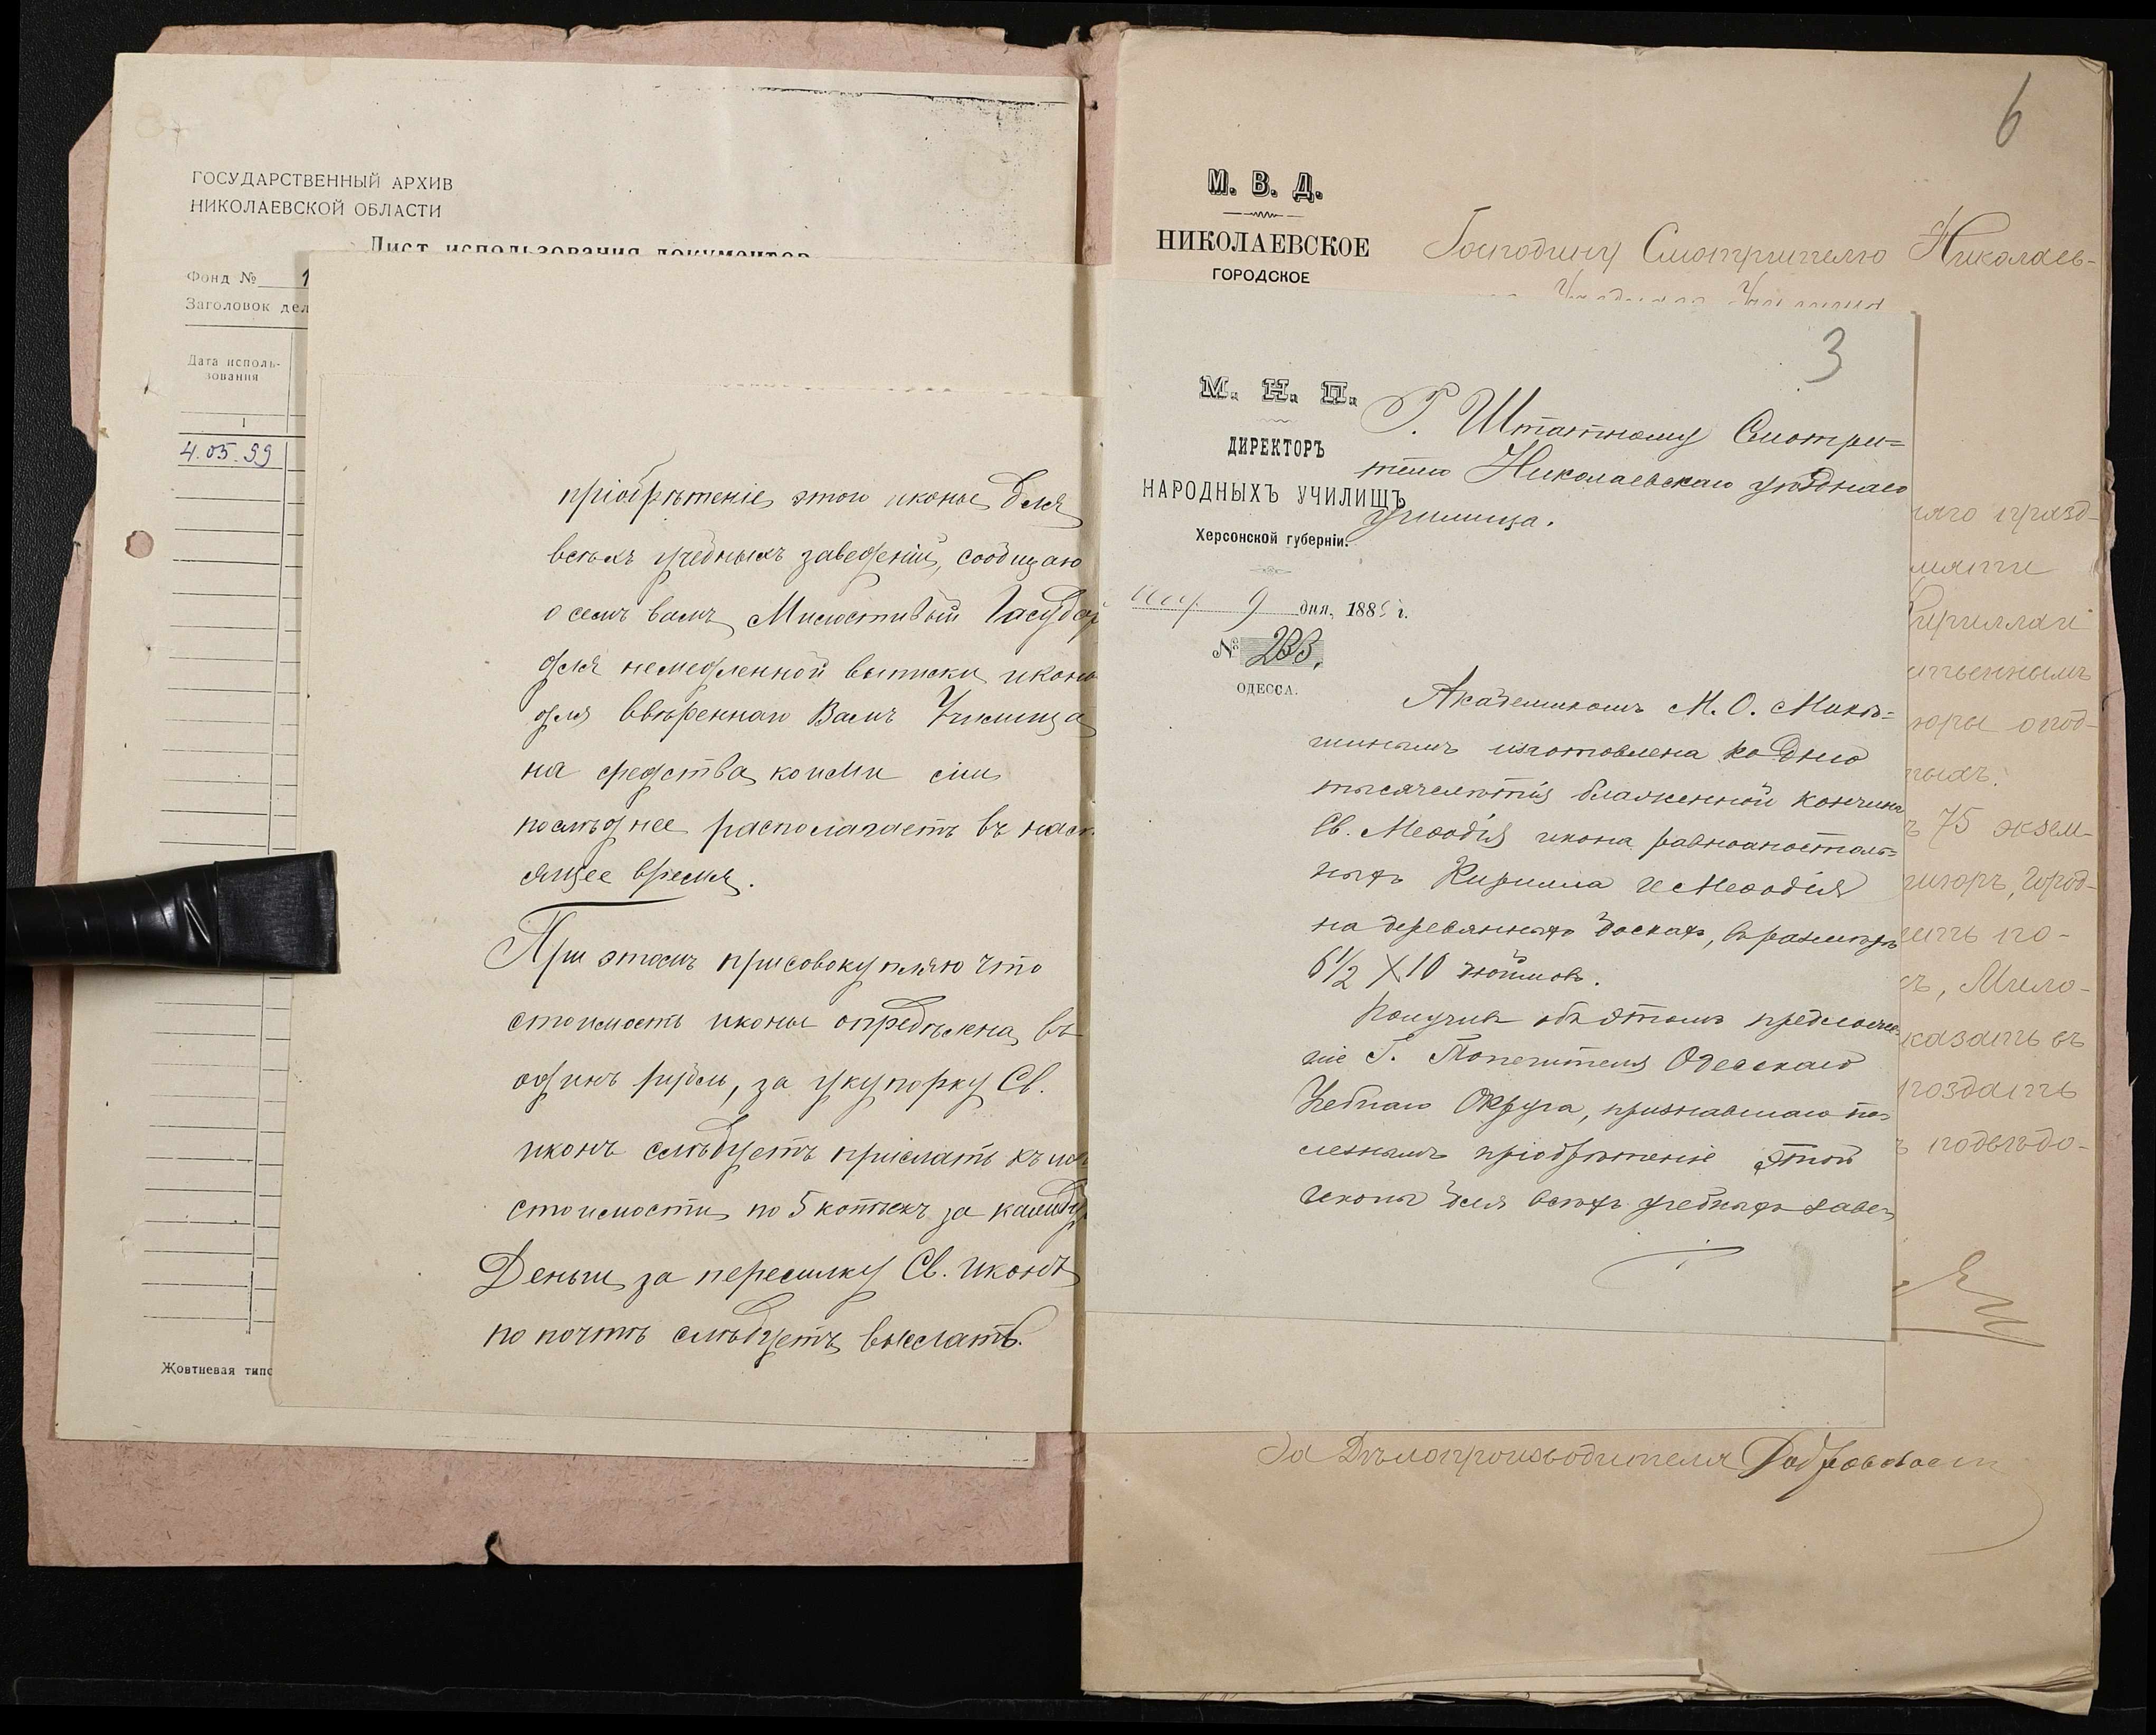 ГОСУДАРСТВЕННЫЙ АРХИВ
НИКОЛАЕВСКОЙ ОБЛАСТИ
Лист использования документов
Фонд № 1
Заголовок дел
Дата исполь-
зования
1
4.05.99
Жовтневая типо
пріобрѣтеніе этой иконы для
всѣхъ учебныхъ заведеній, сообщаю
о семъ вамъ, Милостивый Государ
для немедленной выписки иконы
для ввѣреннаго Вамъ Училища
на средства, коими сіи
послѣднее располагаетъ въ наст
оящее время.
При этомъ присовокупляю что
стоимость иконы опредѣлена въ
одинъ рубль, за укупорку Св.
иконъ слѣдуетъ прислать къ
стоимости по 5 копѣекъ за каждую
Деньги за пересылку Св. иконъ
по почтѣ слѣдуетъ выслать.
6
М. В. Д.
НИКОЛАЕВСКОЕ
ГОРОДСКОЕ
Господину Смотрителю Николаев-
3
М. Н. П.
ДИРЕКТОРЪ
НАРОДНЫХЪ УЧИЛИЩЪ
Херсонской губерніи.
9 дня, 1885 г.
№ 233.
ОДЕССА.
Г. Штатному Смотри=
телю Николаевскаго уѣзднаго
училища.
Академикомъ М. О. Микѣ=
шинымъ изготовлена ко дню
тысячелѣтія блаженной кончины
Св. Меѳодія икона равноапостоль=
ныхъ Кирилла и Меѳодія
на деревянныхъ доскахъ, въ размѣрѣ
6 1/2 X 10 дюймовъ.
Получивъ объ этомъ предложе=
ніе Г. Попечителя Одесскаго
Учебнаго Округа, признавшаго по=
лезнымъ пріобрѣтеніе этой
иконы для всѣхъ учебныхъ заве=
няго празд-
мяти
Кирилла и
ственнымъ
юры о под-
ныхъ.
ъ 75 экзем-
Город-
итъ по-
ъ, Мило-
казать въ
роздать
ъ подвѣдо-
За Дѣлопроизводителя